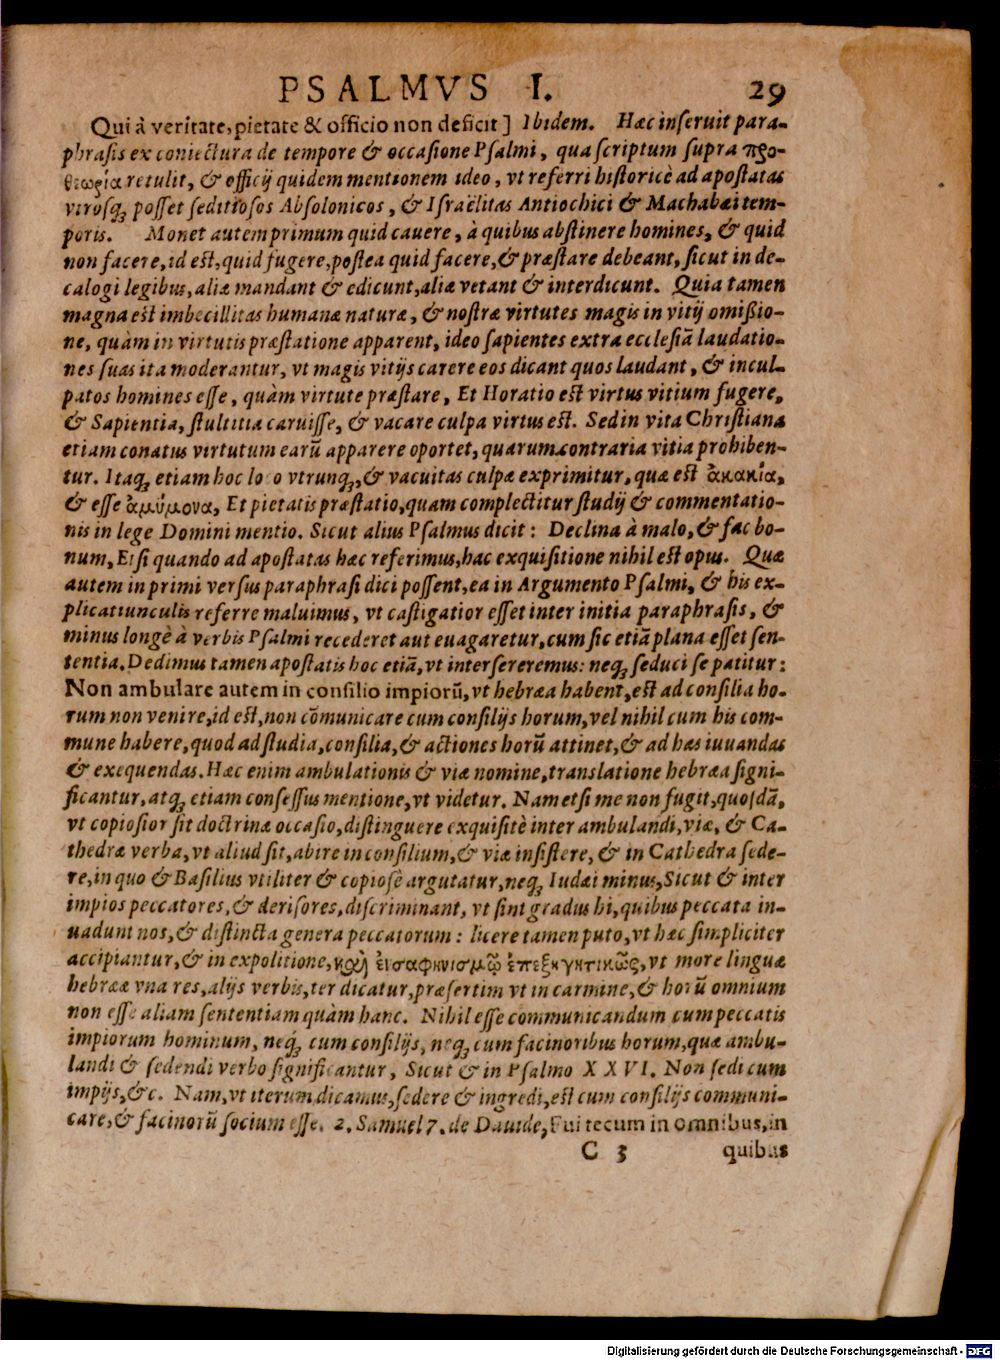 PSALMVS I. 29
Qui à veritate, pietate & officio non deficit] Ibidem. Hæc inseruit para-
phrasis ex coniectura de tempore & occasione Psalmi, qua scriptum supra προ-
θεωρία retulit, & officij quidem mentionem ideo, vt referri historicè ad apostatas
virosq́ posset seditiosos Absolonicos, & Israëlitas Antiochici & Machabæi tem-
poris. Monet autem primum quid cauere, à quibus abstinere homines, & quid
non facere, id est, quid fugere, postea quid facere, & præstare debeant, sicut in de-
calogi legibus, aliæ mandant & edicunt, aliæ vetant & interdicunt. Quia tamen
magna est imbecillitas humanæ naturæ, & nostræ virtutes magis in vitij omißio-
ne, quàm in virtutis præstatione apparent, ideo sapientes extra ecclesiã laudatio-
nes suas ita moderantur, vt magis vitijs carere eos dicant quos laudant, & incul-
patos homines esse, quàm virtute præstare, Et Horatio est virtus vitium fugere,
& Sapientia, stultitia caruisse, & vacare culpa virtus est. Sed in vita Christiana
etiam conatus virtutum earũ apparere oportet, quarum contraria vitia prohiben-
tur. Itaq́ etiam hoc loco vtrunq́, & vacuitas culpæ exprimitur, quæ est ἀκακία,
& esse ἀμύμονα, Et pietatis præstatio, quam complectitur studij & commentatio-
nis in lege Domini mentio. Sicut alius Psalmus dicit: Declina à malo, & fac bo-
num, Etsi quando ad apostatas hæc referimus, hac exquisitione nihil est opus. Quæ
autem in primi versus paraphrasi dici possent, ea in Argumento Psalmi, & his ex-
plicatiunculis referre maluimus, vt castigatior esset inter initia paraphrasis, &
minus longè à verbis Psalmi recederet aut euagaretur, cum sic etiã plana esset sen-
tentia. Dedimus tamen apostatis hoc etiã, vt intersereremus: neq́ seduci se patitur:
Non ambulare autem in consilio impiorũ, vt hebræa habent, est ad consilia ho-
rum non venire, id est, non cõmunicare cum consilijs horum, vel nihil cum his com-
mune habere, quod ad studia, consilia, & actiones horũ attinet, & ad has iuuandas
& exequendas. Hæc enim ambulationis & viæ nomine, translatione hebræa signi-
ficantur, atq́ etiam consessus mentione, vt videtur. Nam etsi me non fugit, quosdã,
vt copiosior sit doctrinæ occasio, distinguere exquisitè inter ambulandi, viæ, & Ca-
thedræ verba, vt aliud sit, abire in consilium, & viæ insistere, & in Cathedra sede-
re, in quo & Basilius vtiliter & copiosè argutatur, neq́ Iudæi minus, Sicut & inter
impios peccatores, & derisores, discriminant, vt sint gradus hi, quibus peccata in-
uadunt nos, & distincta genera peccatorum: licere tamen puto, vt hæc simpliciter
accipiantur, & in expolitione, καὶ εἰσαφηνισμῷ ἐπεξηγητικῶς, vt more linguæ
hebrææ vna res, alijs verbis, ter dicatur, præsertim vt in carmine, & horũ omnium
non esse aliam sententiam quàm hanc. Nihil esse communicandum cum peccatis
impiorum hominum, neq́ cum consilijs, neq́ cum facinoribus horum, quæ ambu-
landi & sedendi verbo significantur, Sicut & in Psalmo XXVI. Non sedi cum
impijs, &c. Nam, vt iterum dicamus, sedere & ingredi, est cum consilijs communi-
care, & facinorũ socium esse. 2. Samuel 7. de Dauide, Fui tecum in omnibus, in
C 3 quibus
Digitalisierung gefördert durch die Deutsche Forschungsgemeinschaft - DFG